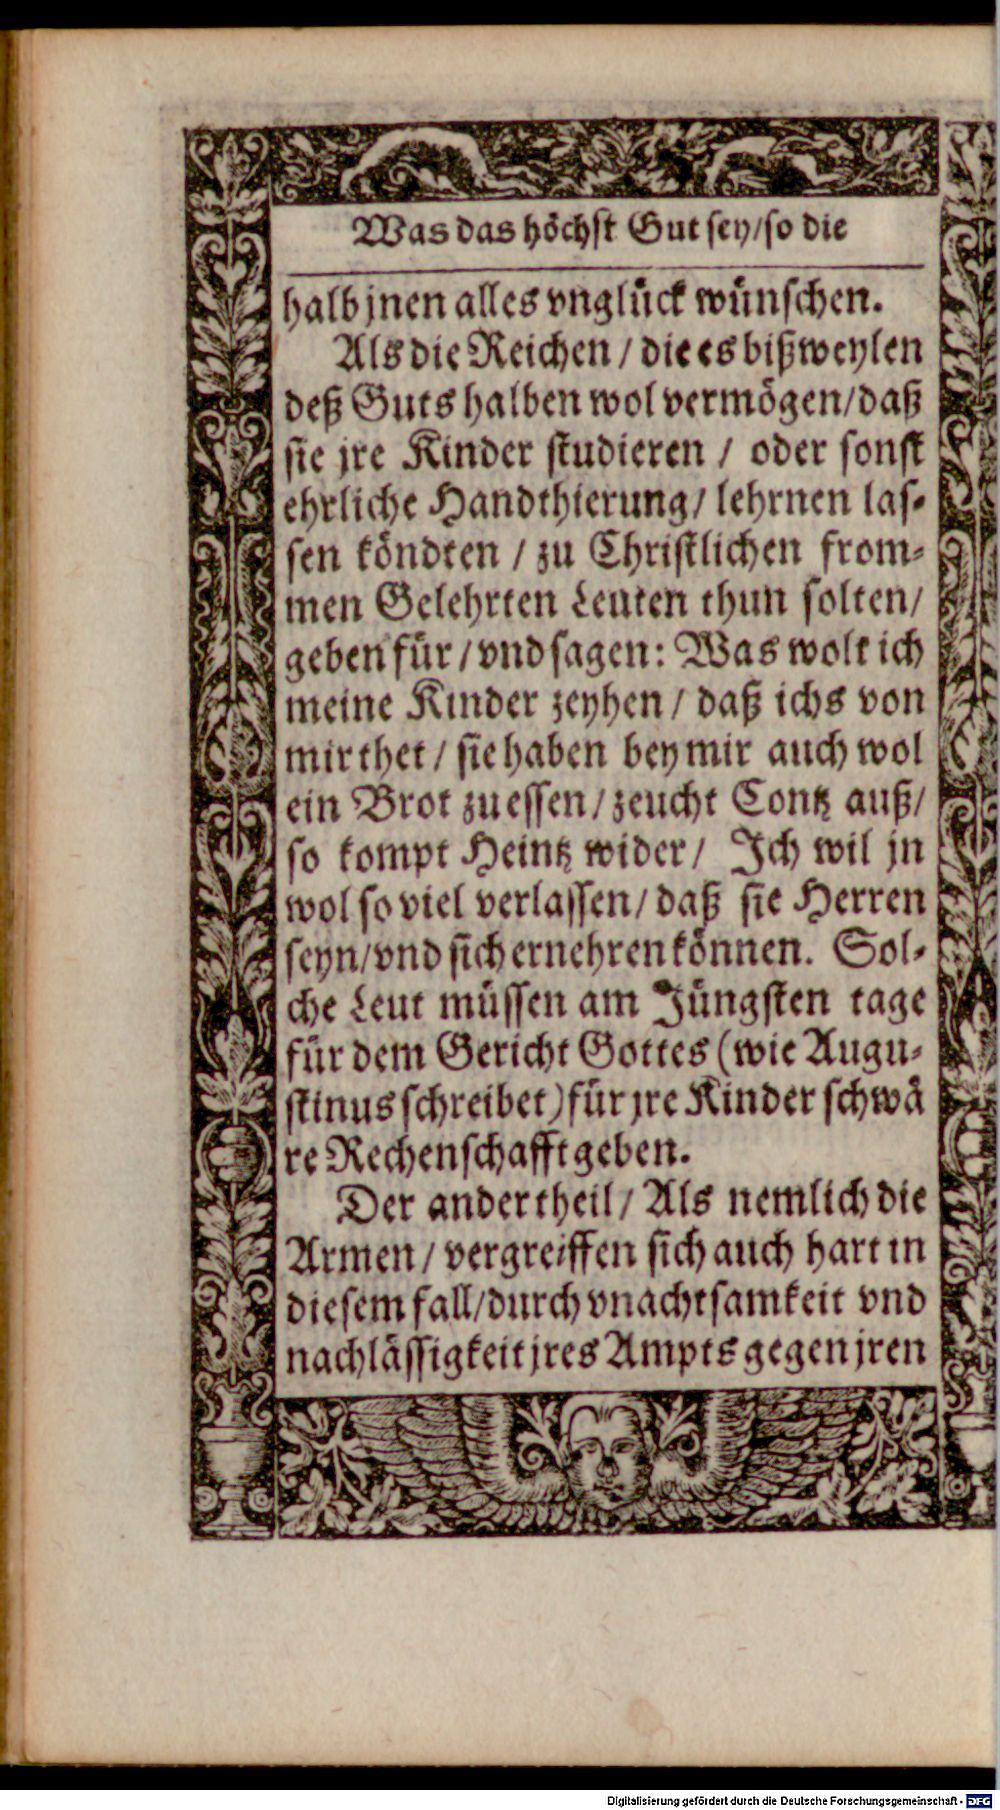 Was das höchst Gut sey/so die
halb jnen alles vnglück wünschen.
Als die Reichen / die es bißweylen
deß Guts halben wol vermögen/daß
sie jre Kinder studieren / oder sonst
ehrliche Handthierung/ lehrnen las-
sen köndten / zu Christlichen from-
men Gelehrten Leuten thun solten/
geben für/vnd sagen: Was wolt ich
meine Kinder zeyhen/ daß ichs von
mir thet/ sie haben bey mir auch wol
ein Brot zu essen/zeucht Contz auß/
so kompt Heintz wider/ Ich wil jn
wol so viel verlassen/ daß sie Herren
seyn/vnd sich ernehren können. Sol-
che Leut müssen am Jüngsten tage
für dem Gericht Gottes (wie Augu-
stinus schreibet) für jre Kinder schwä
re Rechenschafft geben.
Der ander theil/ Als nemlich die
Armen/ vergreiffen sich auch hart in
diesem fall/durch vnachtsamkeit vnd
nachlässigkeit jres Ampts gegen jren
Digitalisierung gefördert durch die Deutsche Forschungsgemeinschaft - DFG